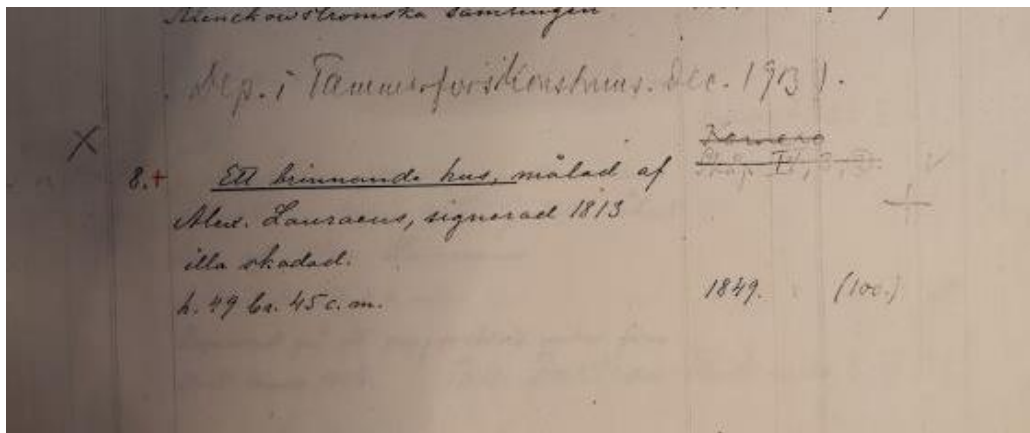 samlingen
Dep. i Tammerfors Konstmus. Dec. 1913).
X
8.+ Ett brinnande hus, målad af
Alex. Lauraeus, signerad 1813
illa skadad.
h. 49 br. 45 c.m. 1849. (100.)